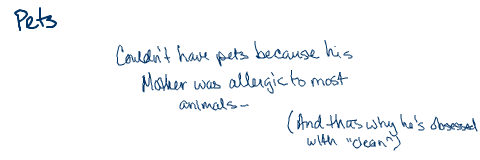 Pets
Couldn't have pets because his
Mother was allergic to most
animals-
(And thas why he's obsessed
with "clean")